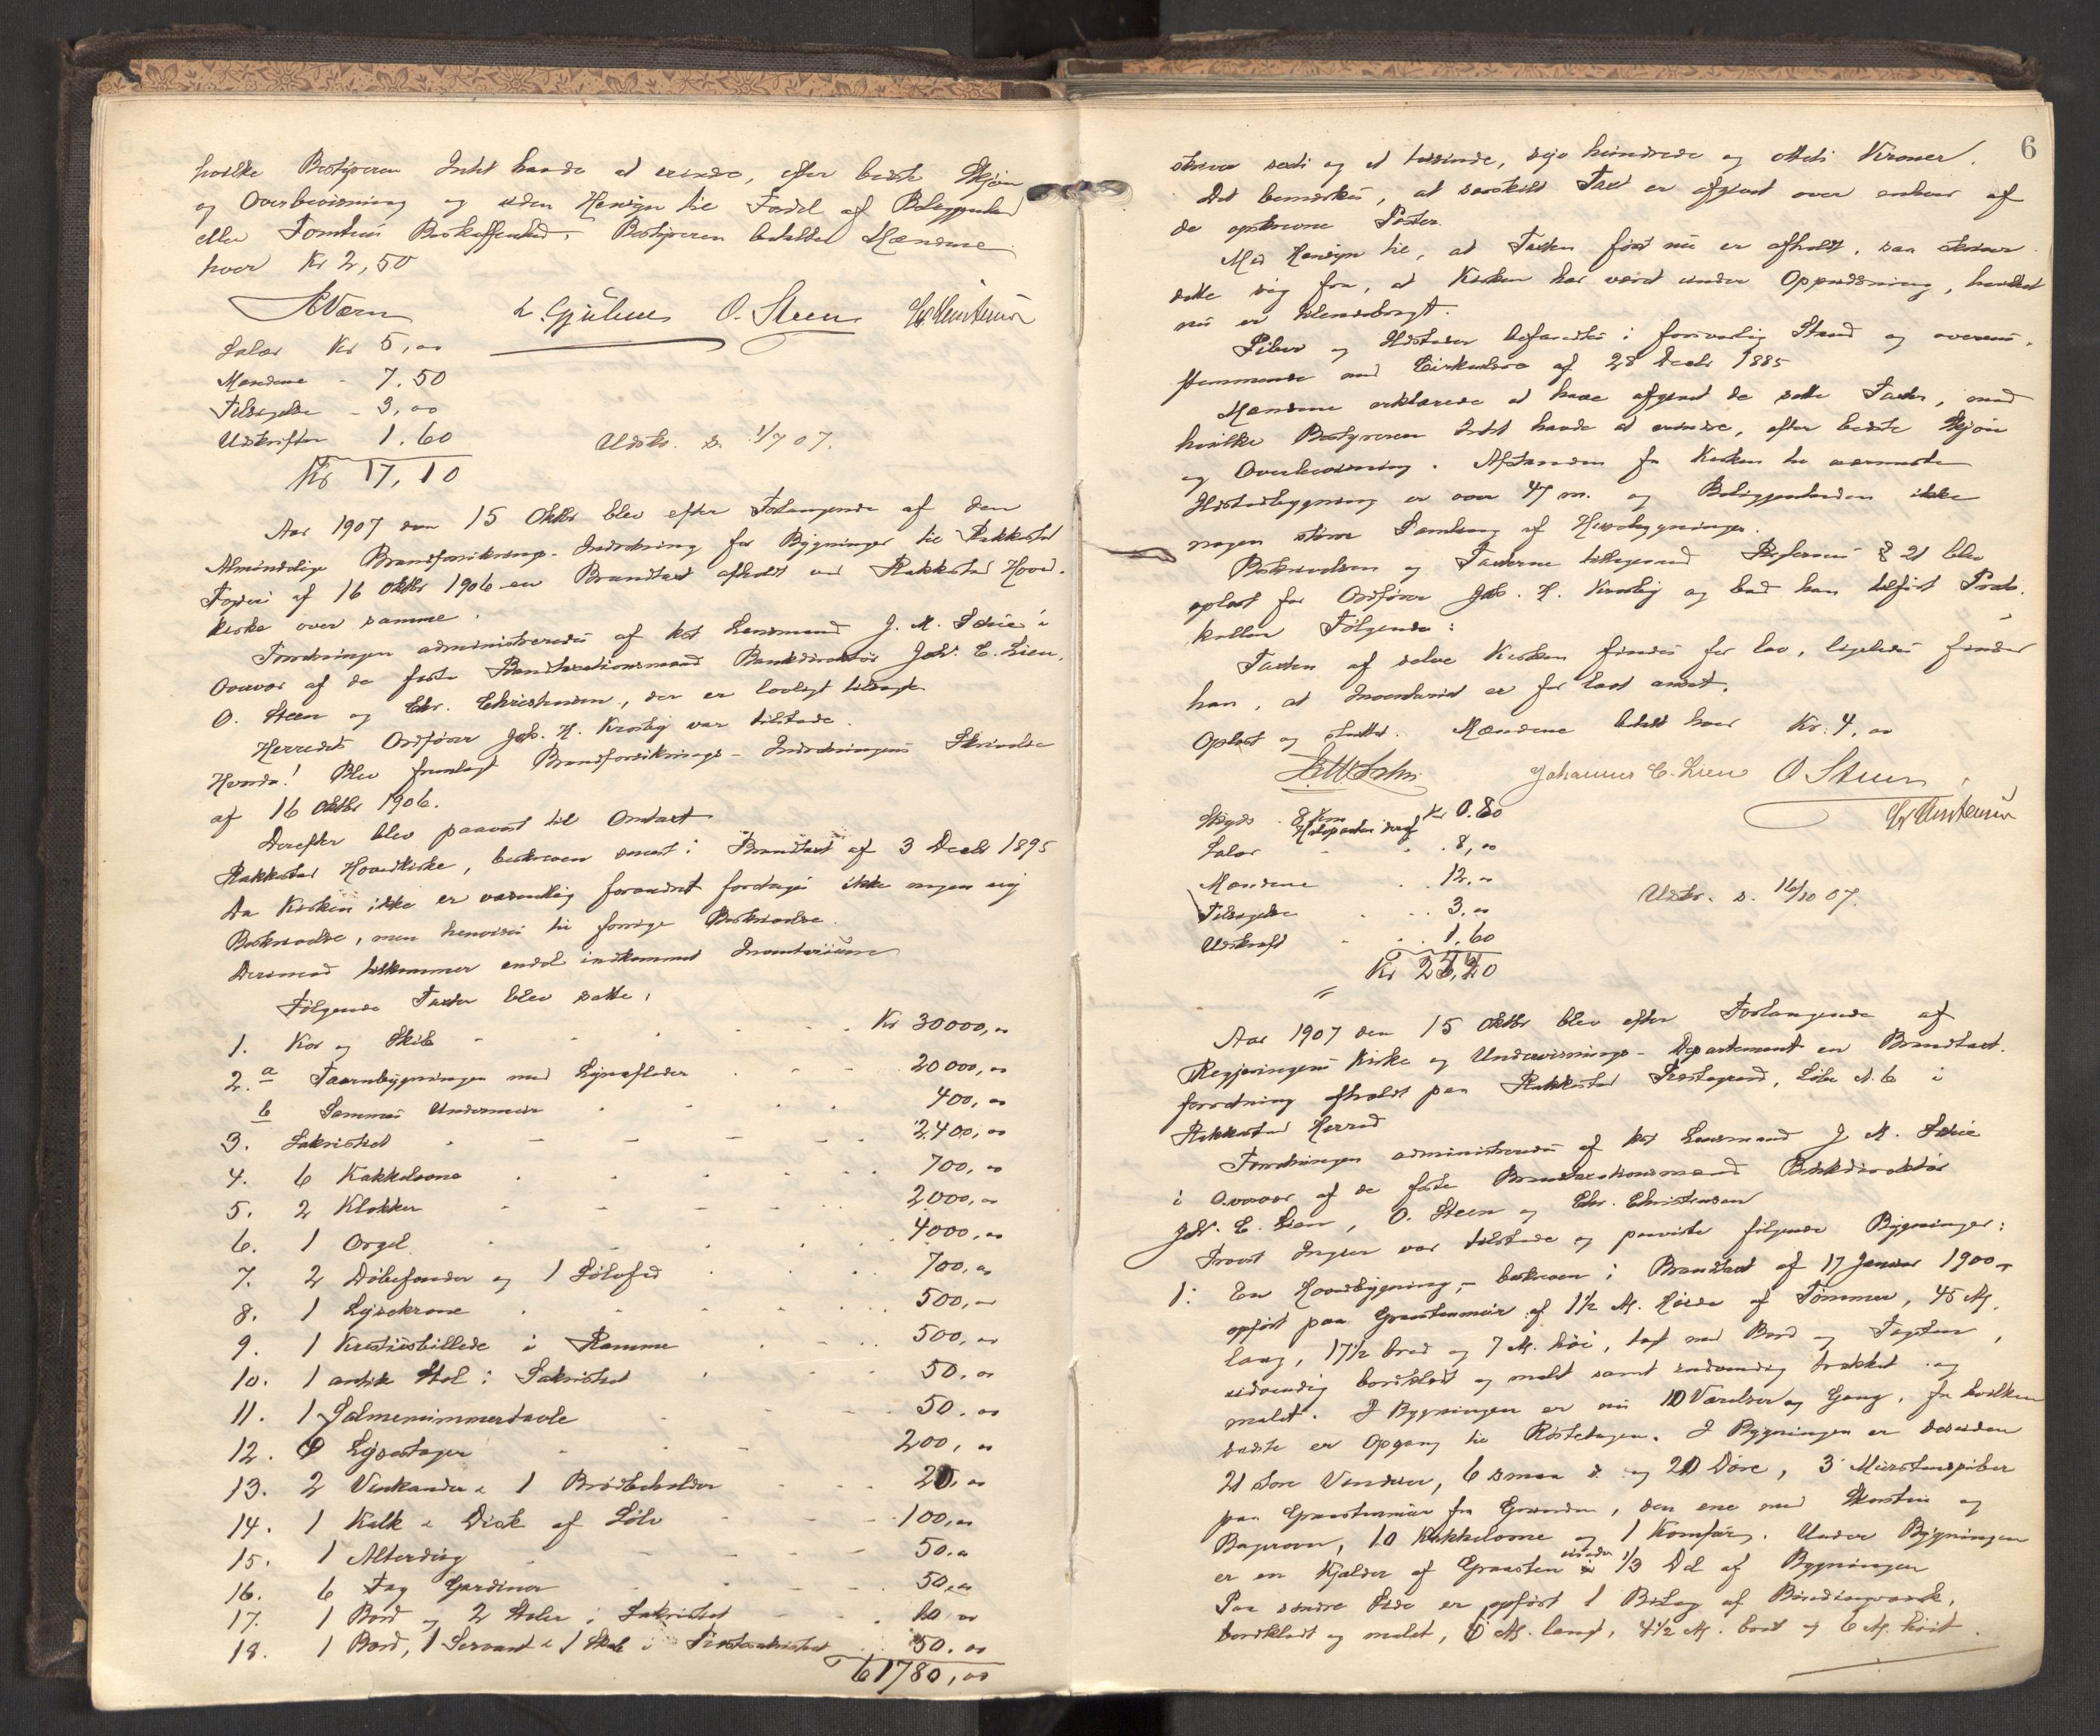 hvilke Bestyreren Intet havde at erindre, efter bedste Skjøn
og Overbevisning og uden Hensyn til Fordel af Beliggenhed
eller Tomtens Beskaffenhed. Bestyreren betalte Mændene
hver Kr 2,50
L. Gjulem O. Steen Chr Christensen
Salær Kr 5,00
Mændene - 7.50
Tilsigelse - 3,00
Udskrifter 1.60
Kr 17,10
Udskr. d. 1/7 07.
Aar 1907 den 15 Oktbr blev efter Forlangende af den
Almindelige Brandforsikrings-Indretning for Bygninger til Rakkestad
Fogderi af 16 Oktbr 1906 en Brandtaxt afholdt ved Rakkestad Hoved-
kirke over samme.
Forretningen administreredes af kst Lensmand J. M. i
Overvær af de faste Brandtaxationsmænd Bankdirektør Johs. C. Lien,
O. Steen og Chr. Christensen, der er lovligt tilsagte
Herredets Ordfører Jak. H. Kraby var tilstede.
Hvorda! Blev fremlagt Brandforsikrings-Indretningens Skrivelse
af 16 Oktbr 1906.
Derefter blev paavist til Omtaxt
Rakkestad Hovedkirke, beskreven senest i Brandtaxt af 3 Decbr 1895
Da Kirken ikke er væsentlig forandret foretages ikke nogen ny
Beskrivelse, men henvises til forrige Beskrivelse.
Derimod tilkommer endel indkommet Inventarium
Følgende Taxter blev satte:
1. Kor og Skib Kr 30000,00
2. a Taarnbygningen med Lynafleder 20000,00
b Sammes Undermur 400,00
3. Sakristiet 2400,00
4. 6 Kakkelovne 700,00
5. 2 Klokker 2000,00
6. 1 Orgel 4000,00
7. 2 Døbefonder og 1 Sølvfad 700,00
8. 1 Lysekrone 500,00
9. 1 Kristusbillede i Ramme 500,00
10. 1 antik Stol i Sakristiet 50,00
11. 1 Salmenummertavle 50,00
12. Lysestager 200,00
13. 2 Vinkander & 1 Brødbeholder 20,00
14. 1 Kalk & Disk af Sølv 100,00
15. 1 Alterdug 50.00
16. 6 Fag Gardiner 50,00
17. 1 Bord og 2 Stoler i Sakristiet 00
18. 1 Bord, 1 Servant & 1 i 50.00
61780,00
6
skriver sexti og et tusinde, syv hundrede og otteti Kroner.
Det bemærkes, at særskilt Taxt er afgivet over enhver af
de opskrevne Poster.
Med Hensyn til, at Taxten først nu er afholdt, saa skriver
dette sig fra, at Kirken har været under Oppudsning, hvilket
nu er tilendebragt.
Piber og Ildsteder befandtes i forsvarlig Stand og overens-
stemmende med Cirkulære af 28 Decbr 1885
Mændene erklærede at have afgivet de satte Taxter, mod
hvilke Bestyreren Intet havde at erindre, efter bedste Skjøn
og Overbevisning. Afstanden fra Kirken til nærmeste
Ildstedbygning er over 47 m. og Beliggenheden ikke
nogen større Samling af Husebygninger.
Beskrivelsen og Taxterne tilligemed § 21 blev
oplæst for Ordfører Jak. H. Kraby og bad han tilført Proto-
kollen Følgende:
Taxten af selve Kirken findes for lav, ligeledes finder
han, at Inventariet er for lavt ansat.
Oplæst og sluttet. Mændene betalt hver Kr. 4,00
Johannes C. Lien O Steen
Chr Christensen
Skyds 8 Km Kr 0.80
Salær 8,00
Mændene 12,00
Tilsigelse 3,00
Udskrift 1,60
Kr 25,40
Udskr. d. 16/10 07.
Aar 1907 den 15 Oktbr blev efter Forlangende af
Regjeringens Kirke og Undervisnings-Departement en Brandtaxt-
forretning afholdt paa Rakkestad Prestegaard, Løbe N. 6 i
Rakkestad Herred
Forretningen administreredes af kst Lensmand J M.
i Overvær af de faste Brandtaxationsmænd Bankdirektør
Johs. C. Lien, O. Steen og Chr. Christensen
Provst var tilstede og paaviste følgende Bygninger:
1: En Hovedbygning, beskreven i Brandtaxt af 17 Januar 1900,
opført paa Graastensmur af 1½ M. Høide af Tømmer, 45 M.
lang, 17½ bred og 7 M. høi, tagt med Bord og Tagsten,
udvendig bordklædt og malt samt indvendig trækket og
malt. I Bygningen er nu 10 Værelser og Gang, fra hvilken
sidste er Opgang til Røstetagen. I Bygningen er desuden
21 store Vinduer, 6 smaa d. og 20 Døre, 3 Murstenspiber
paa Graastensmur fra Grunden, den ene med Skorsten og
Bagerovn, 10 Kakkelovne og 1 Komfur. Under Bygningen
er en Kjelder af Graasten under 1/3 Del af Bygningen
Paa søndre Side er opført 1 Bislag af Bindingsværk,
bordklædt og malet, M. langt, 4½ M. bredt og 6 M. høit.